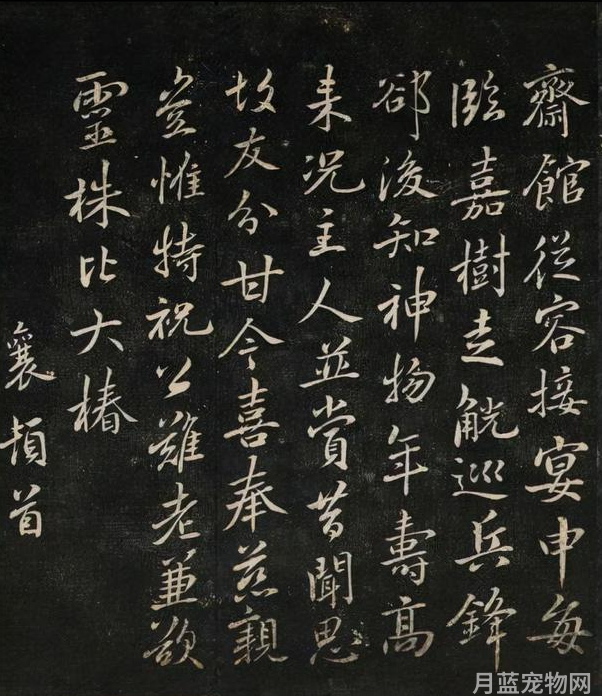 齋館從容接宴申每
臨嘉樹走觥巡兵鋒
卻後知神物年壽高
来況主人並賞昔聞思
故友分甘今喜奉慈親
豈惟特祝公難老兼欲
靈株比大椿
襄頓首
月蓝宠物网